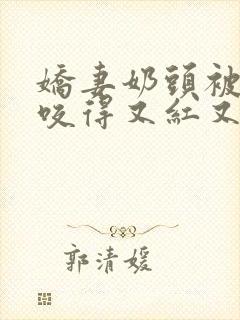 嬌妻奶頭被
咬得又紅又
郭清媛